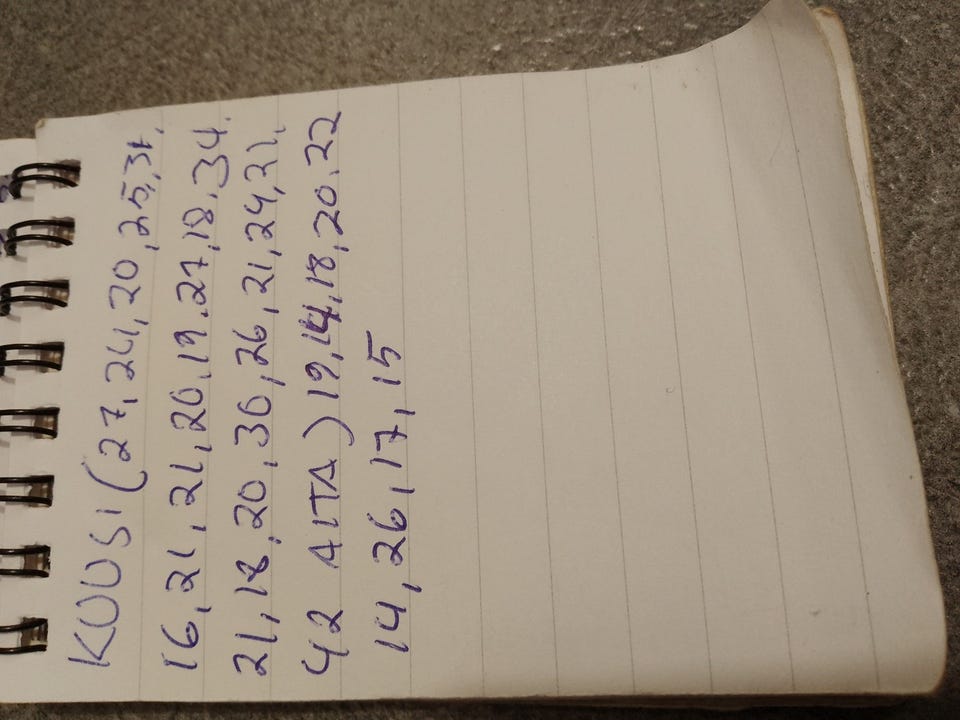 KUUSI (27, 24, 20, 25, 31,
16, 21, 21, 20, 19. 27, 18, 34.
21, 18, 20, 30, 26, 21, 24, 21,
42 AITA) 19, 14, 18, 20. 22
14, 26, 17, 15